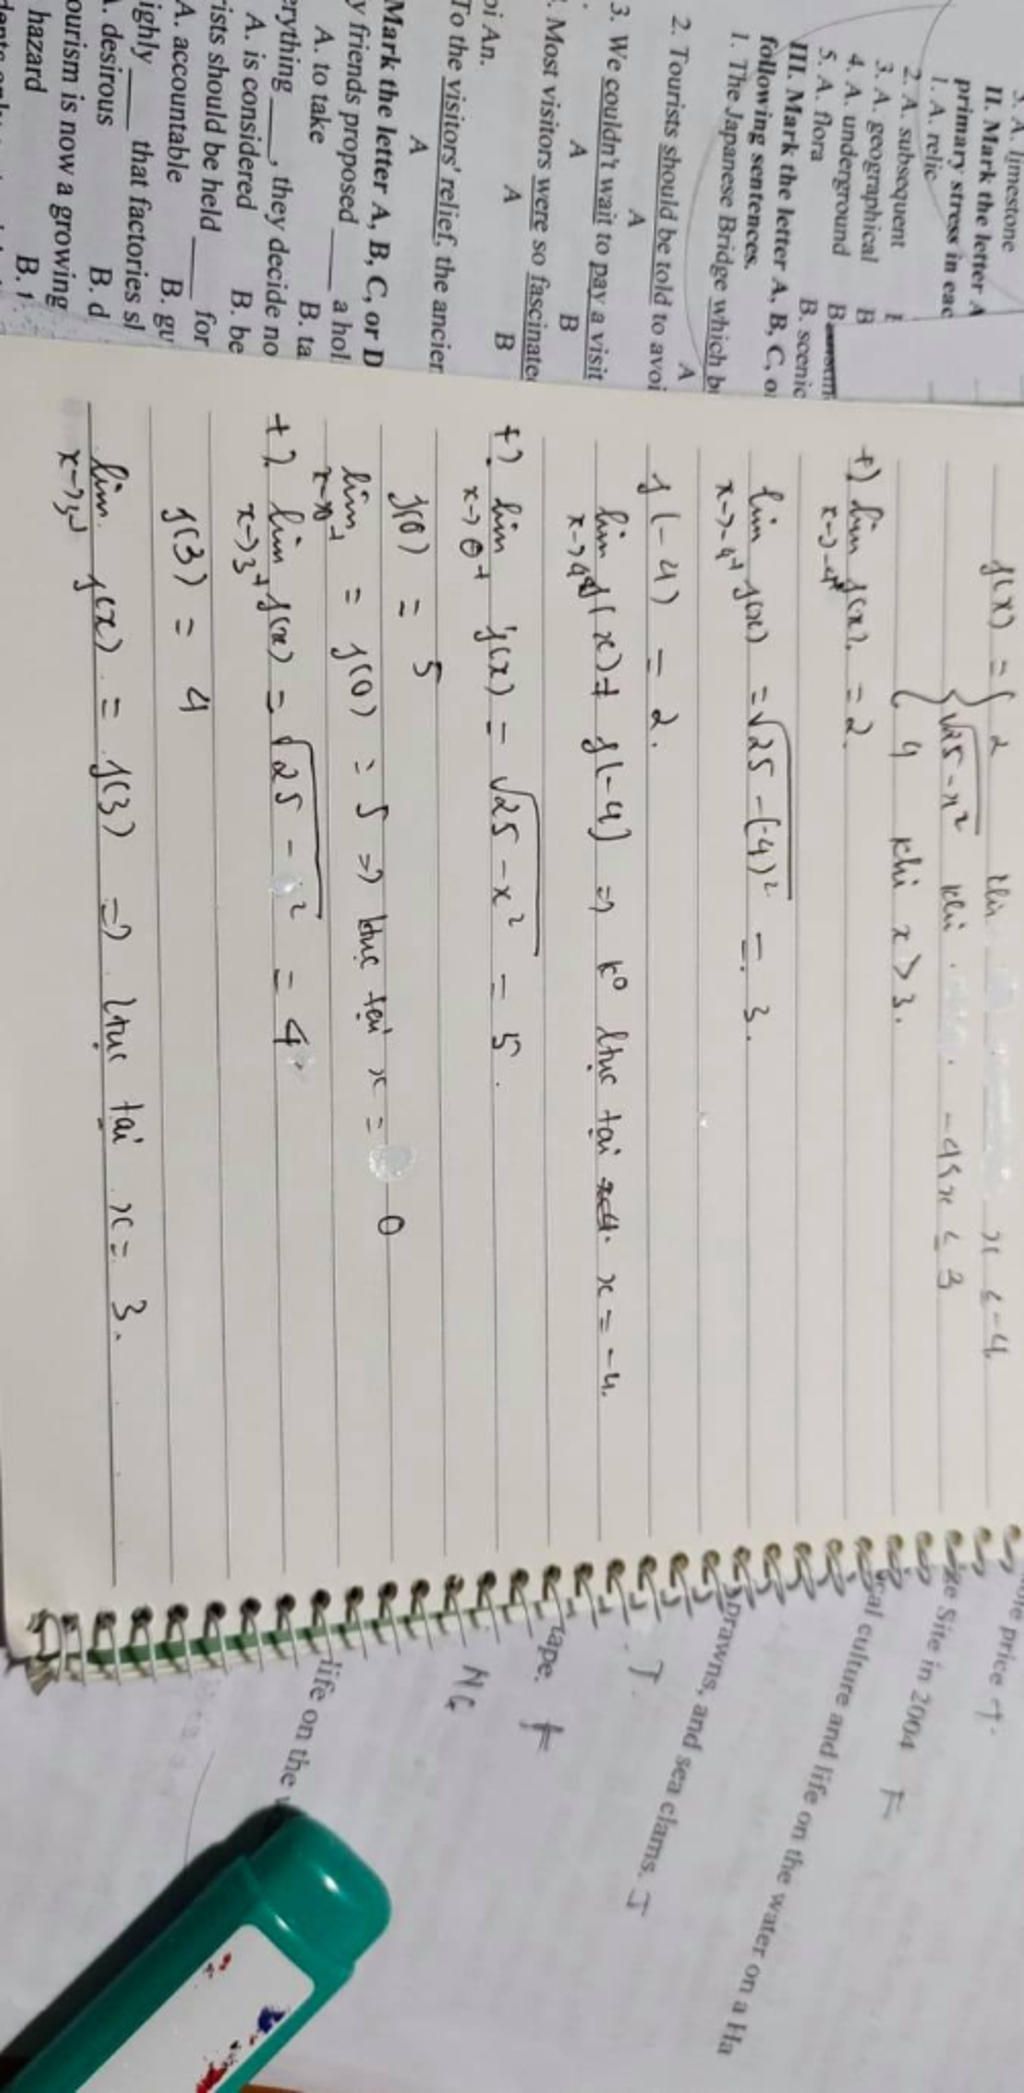 3. A. limestone
II. Mark the letter A
primary stress in eac
1. A. relic
2. A. subsequent
3. A. geographical B
4. A. underground B
5. A. flora B. scenic
III. Mark the letter A, B, C, o
following sentences.
1. The Japanese Bridge which b
A
2. Tourists should be told to avoi
A
3. We couldn't wait to pay a visit
A B
. Most visitors were so fascinated
A B
oi An.
To the visitors' relief, the ancien
A
Mark the letter A, B, C, or D
y friends proposed ____ a hol
A. to take B. ta
erything ____, they decide no
A. is considered B. be
ists should be held ____ for
A. accountable B. gu
ighly ____ that factories sl
. desirous B. d
ourism is now a growing
hazard B. 1
f(x) = { 2 khi x ≤ -4
{ √25-x² khi -4 < x ≤ 3
{ 4 khi x > 3.
+) lim f(x) = 2.
x→-4⁻
lim f(x) = √25-(-4)² = 3.
x→-4⁺
f(-4) = 2.
lim f(x) ≠ f(-4) => k⁰ ltục tại x = -4.
+) lim f(x) = √25-x² = 5.
x→0⁺
f(0) = 5
lim = f(0) = 5 => ltục tại x = 0
x→0⁺
+) lim f(x) = √25- ² = 4
x→3⁺
f(3) = 4
lim f(x) = f(3) => ltục tại x = 3.
price
Site in 2004 F
al culture and life on the water on a Ha
prawns, and sea clams. T
. T.
tape. F
NG
life on the